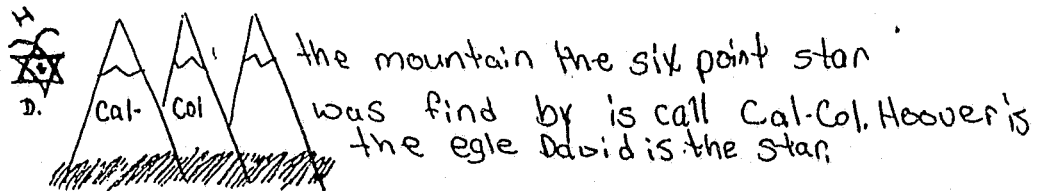 H
D.
Cal- Col
the mountain the six point star
was find by is call Cal-Col. Hoover is
the egle David is the star.